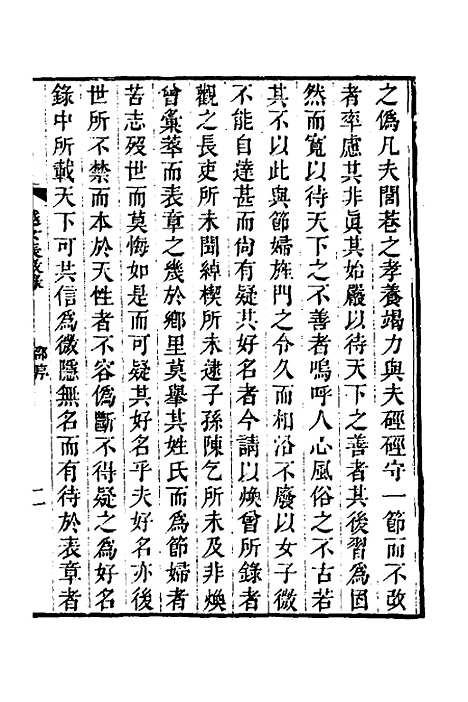 之僞凡夫閭巷之孝養竭力與夫硜硜守一節而不改
者率慮其非眞其始嚴以待天下之善者其後習爲因
然而寬以待天下之不善者嗚呼人心風俗之不古若
其不以此與節婦旌門之令久而相沿不廢以女子微
不能自達甚而尙有疑其好名者今請以煥曾所錄者
觀之長吏所未聞綽楔所未逮子孫陳乞所未及非煥
曾彙萃而表章之幾於鄉里莫舉其姓氏而爲節婦者
苦志歿世而莫悔如是而可疑其好名乎夫好名亦後
世所不禁而本於天性者不容僞斷不得疑之爲好名
錄中所載天下可共信爲微隱無名而有待於表章者
邵序
二